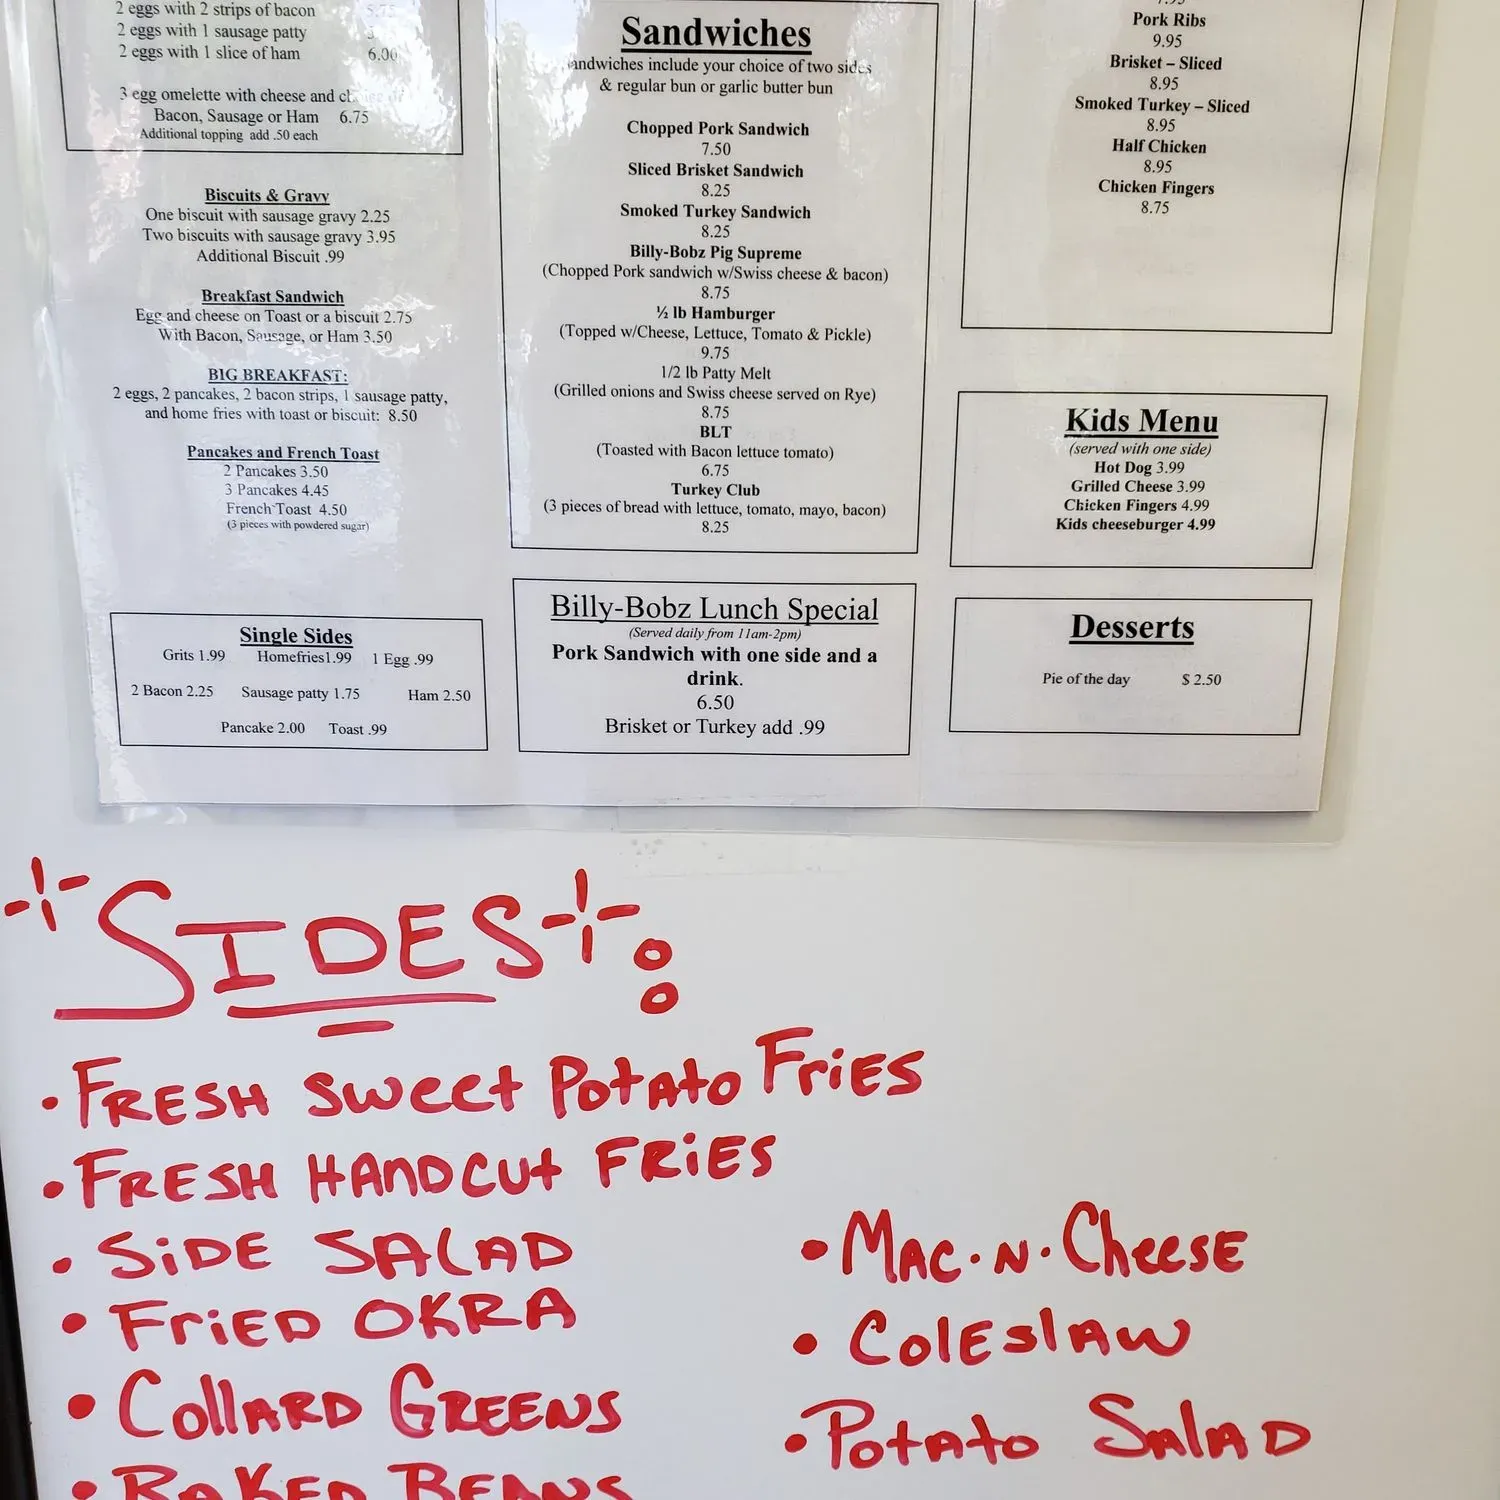 2 eggs with 2 strips of bacon 5.75
2 eggs with 1 sausage patty
2 eggs with 1 slice of ham 6.00
3 egg omelette with cheese and
Bacon, Sausage or Ham 6.75
Additional topping add .50 each
Biscuits & Gravy
One biscuit with sausage gravy 2.25
Two biscuits with sausage gravy 3.95
Additional Biscuit .99
Breakfast Sandwich
Egg and cheese on Toast or a biscuit 2.75
With Bacon, Sausage, or Ham 3.50
BIG BREAKFAST:
2 eggs, 2 pancakes, 2 bacon strips, 1 sausage patty,
and home fries with toast or biscuit: 8.50
Pancakes and French Toast
2 Pancakes 3.50
3 Pancakes 4.45
French Toast 4.50
(3 pieces with powdered sugar)
Single Sides
Grits 1.99 Homefries1.99 1 Egg .99
2 Bacon 2.25 Sausage patty 1.75 Ham 2.50
Pancake 2.00 Toast .99
Sandwiches
andwiches include your choice of two sides
& regular bun or garlic butter bun
Chopped Pork Sandwich
7.50
Sliced Brisket Sandwich
8.25
Smoked Turkey Sandwich
8.25
Billy-Bobz Pig Supreme
(Chopped Pork sandwich w/Swiss cheese & bacon)
8.75
½ lb Hamburger
(Topped w/Cheese, Lettuce, Tomato & Pickle)
9.75
1/2 lb Patty Melt
(Grilled onions and Swiss cheese served on Rye)
8.75
BLT
(Toasted with Bacon lettuce tomato)
6.75
Turkey Club
(3 pieces of bread with lettuce, tomato, mayo, bacon)
8.25
Billy-Bobz Lunch Special
(Served daily from 11am-2pm)
Pork Sandwich with one side and a
drink.
6.50
Brisket or Turkey add .99
7.95
Pork Ribs
9.95
Brisket – Sliced
8.95
Smoked Turkey – Sliced
8.95
Half Chicken
8.95
Chicken Fingers
8.75
Kids Menu
(served with one side)
Hot Dog 3.99
Grilled Cheese 3.99
Chicken Fingers 4.99
Kids cheeseburger 4.99
Desserts
Pie of the day $ 2.50
SIDES:
• FRESH SWEET POTATO FRIES
• FRESH HANDCUT FRIES
• SIDE SALAD
• FRIED OKRA
• COLLARD GREENS
• BAKED BEANS
• MAC·N·CHEESE
• COLESLAW
• POTATO SALAD